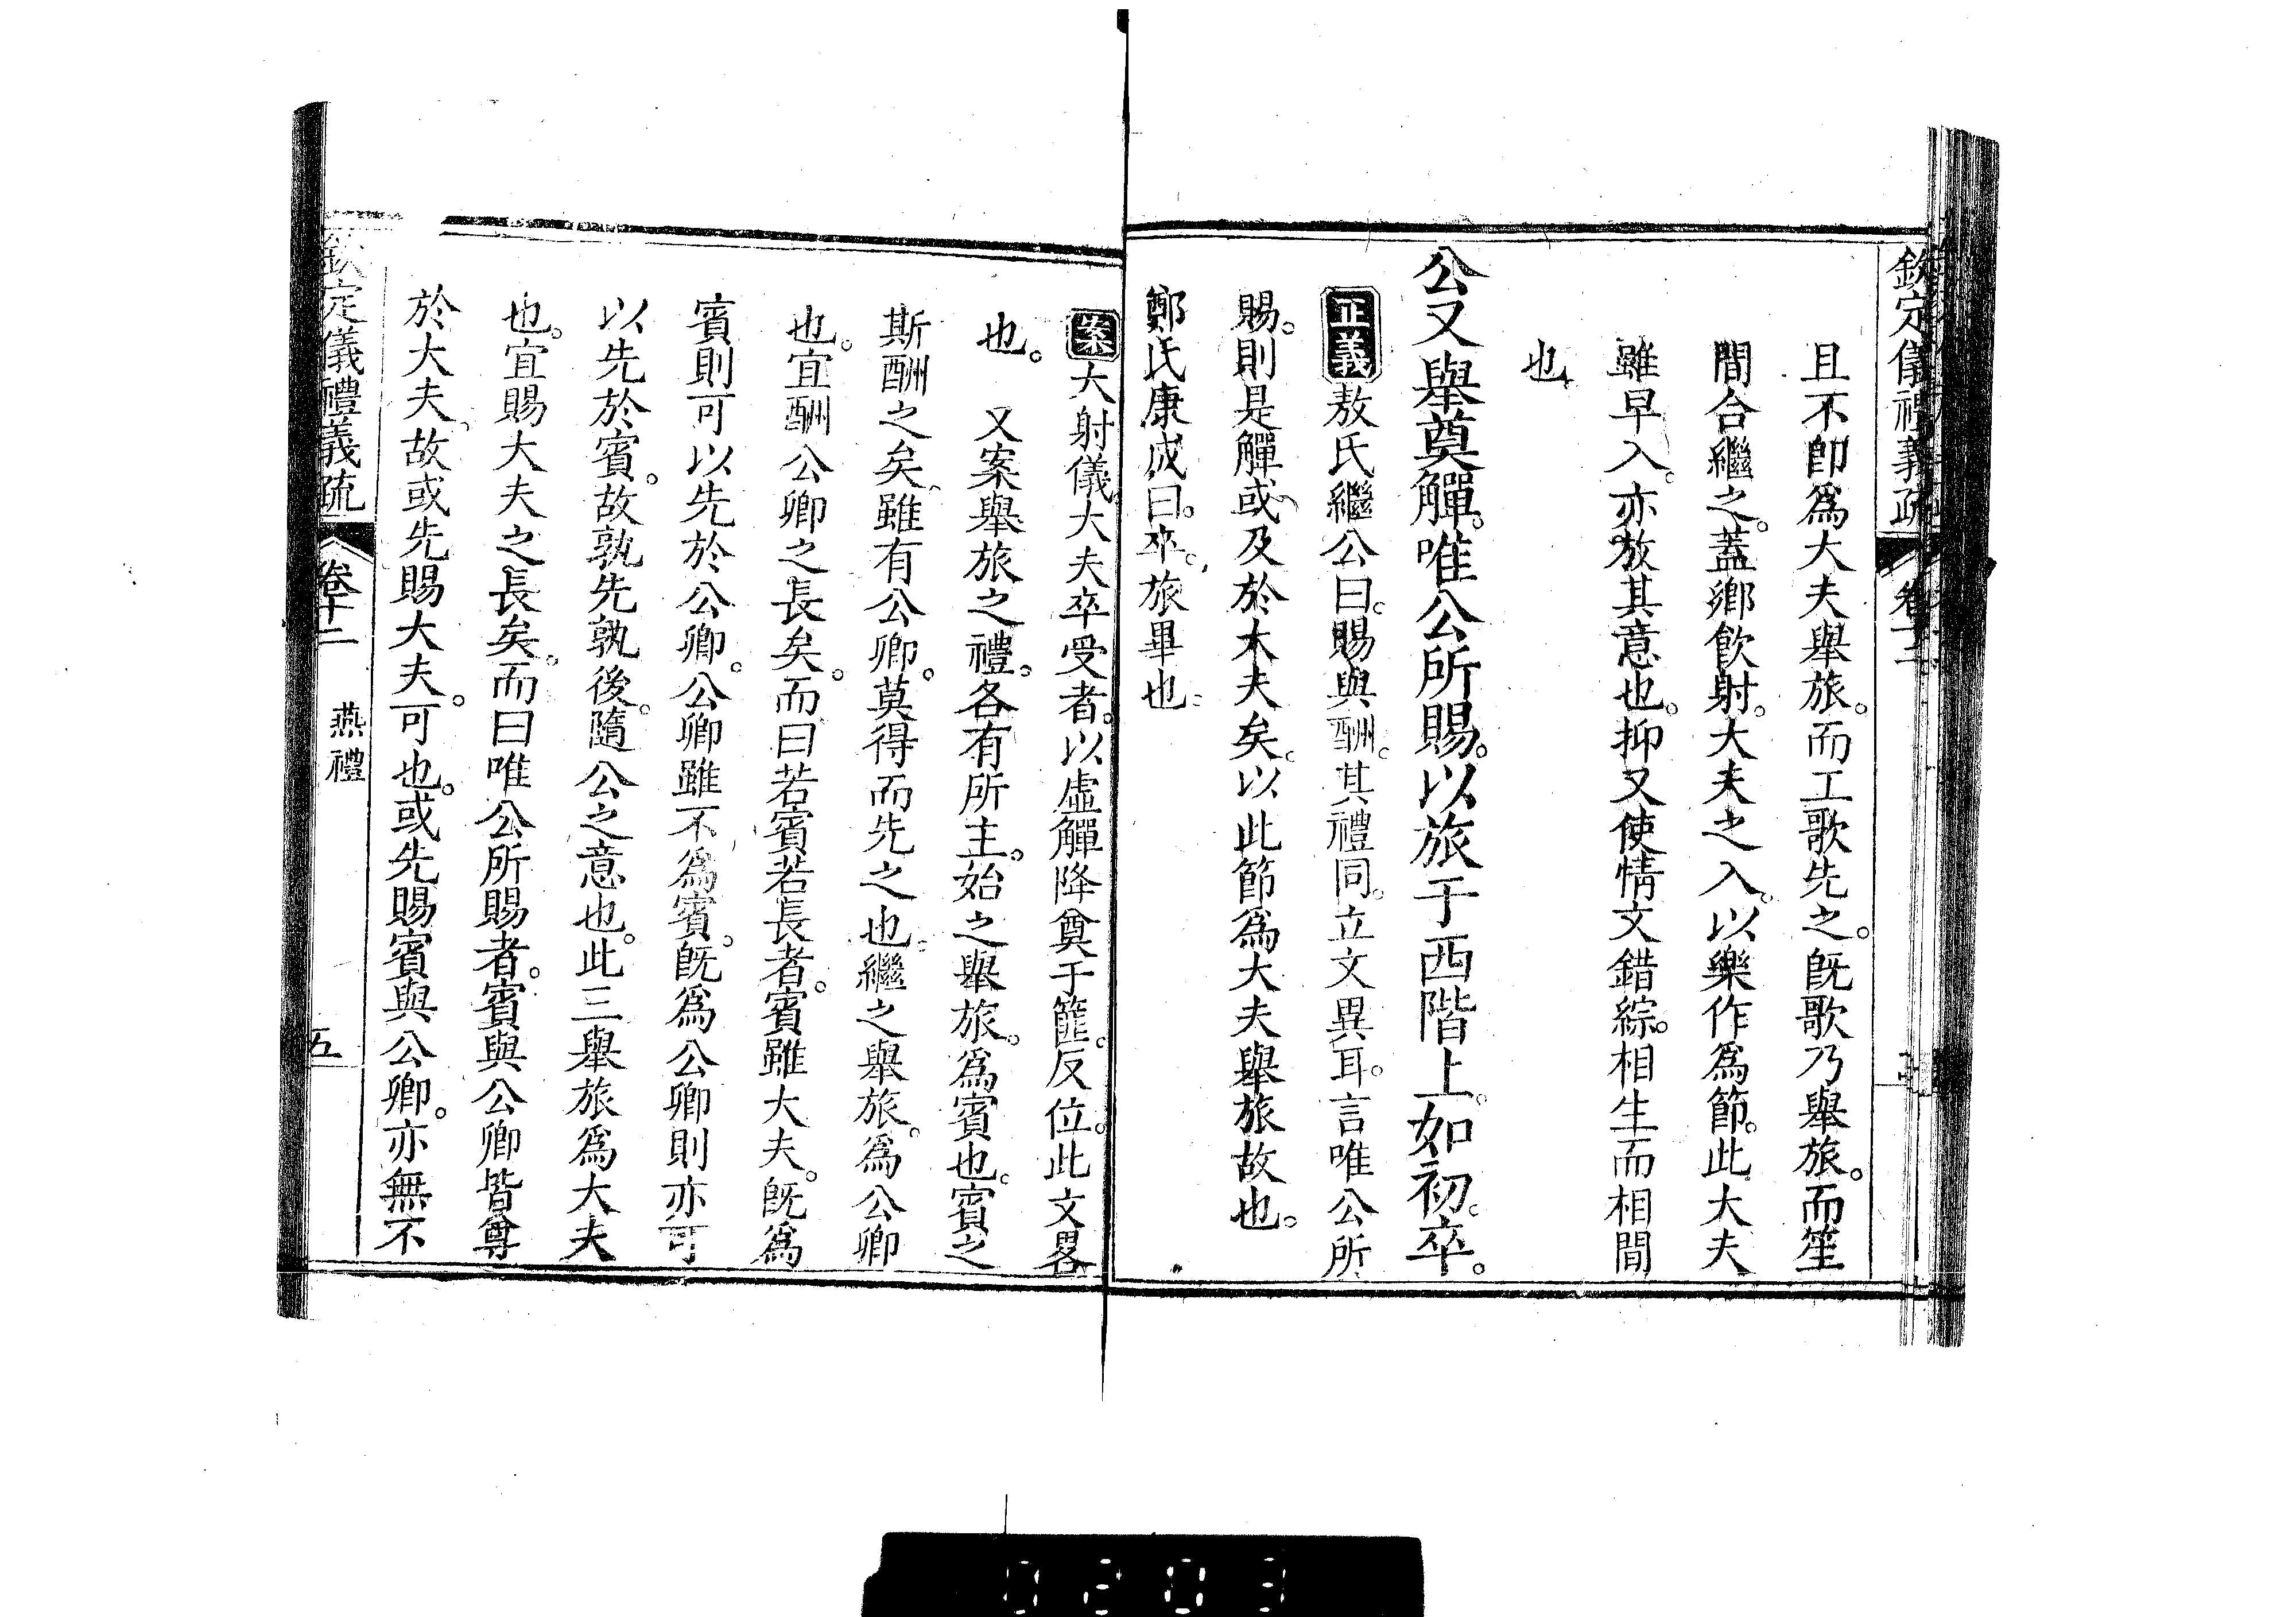 欽定儀禮義疏 卷十二
且不卽爲大夫舉旅。而工歌先之。旣歌乃舉旅。而笙
間合繼之。蓋鄉飲射。大夫之入。以樂作爲節。此大夫
雖早入。亦放其意也。抑又使情文錯綜。相生而相間
也
公又舉奠觶。唯公所賜。以旅于西階上。如初。卒。
正義敖氏繼公曰。賜與酬。其禮同。立文異耳。言唯公所
賜。則是觶或及於大夫矣。以此節爲大夫舉旅故也。
鄭氏康成曰。卒。旅畢也。
案大射儀。大夫卒受者。以虛觶降奠于篚。反位。此文畧
也。 又案舉旅之禮。各有所主。始之舉旅。爲賓也。賓之
斯酬之矣。雖有公卿。莫得而先之也。繼之舉旅。爲公卿
也。宜酬公卿之長矣。而曰若賓若長者。賓雖大夫。旣爲
賓則可以先於公卿。公卿雖不爲賓。旣爲公卿則亦可
以先於賓。故孰先孰後。隨公之意也。此三舉旅爲大夫
也。宜賜大夫之長矣。而曰唯公所賜者。賓與公卿皆尊
於大夫。故或先賜大夫。可也。或先賜賓與公卿。亦無不
欽定儀禮義疏 卷十二 燕禮 五
0203